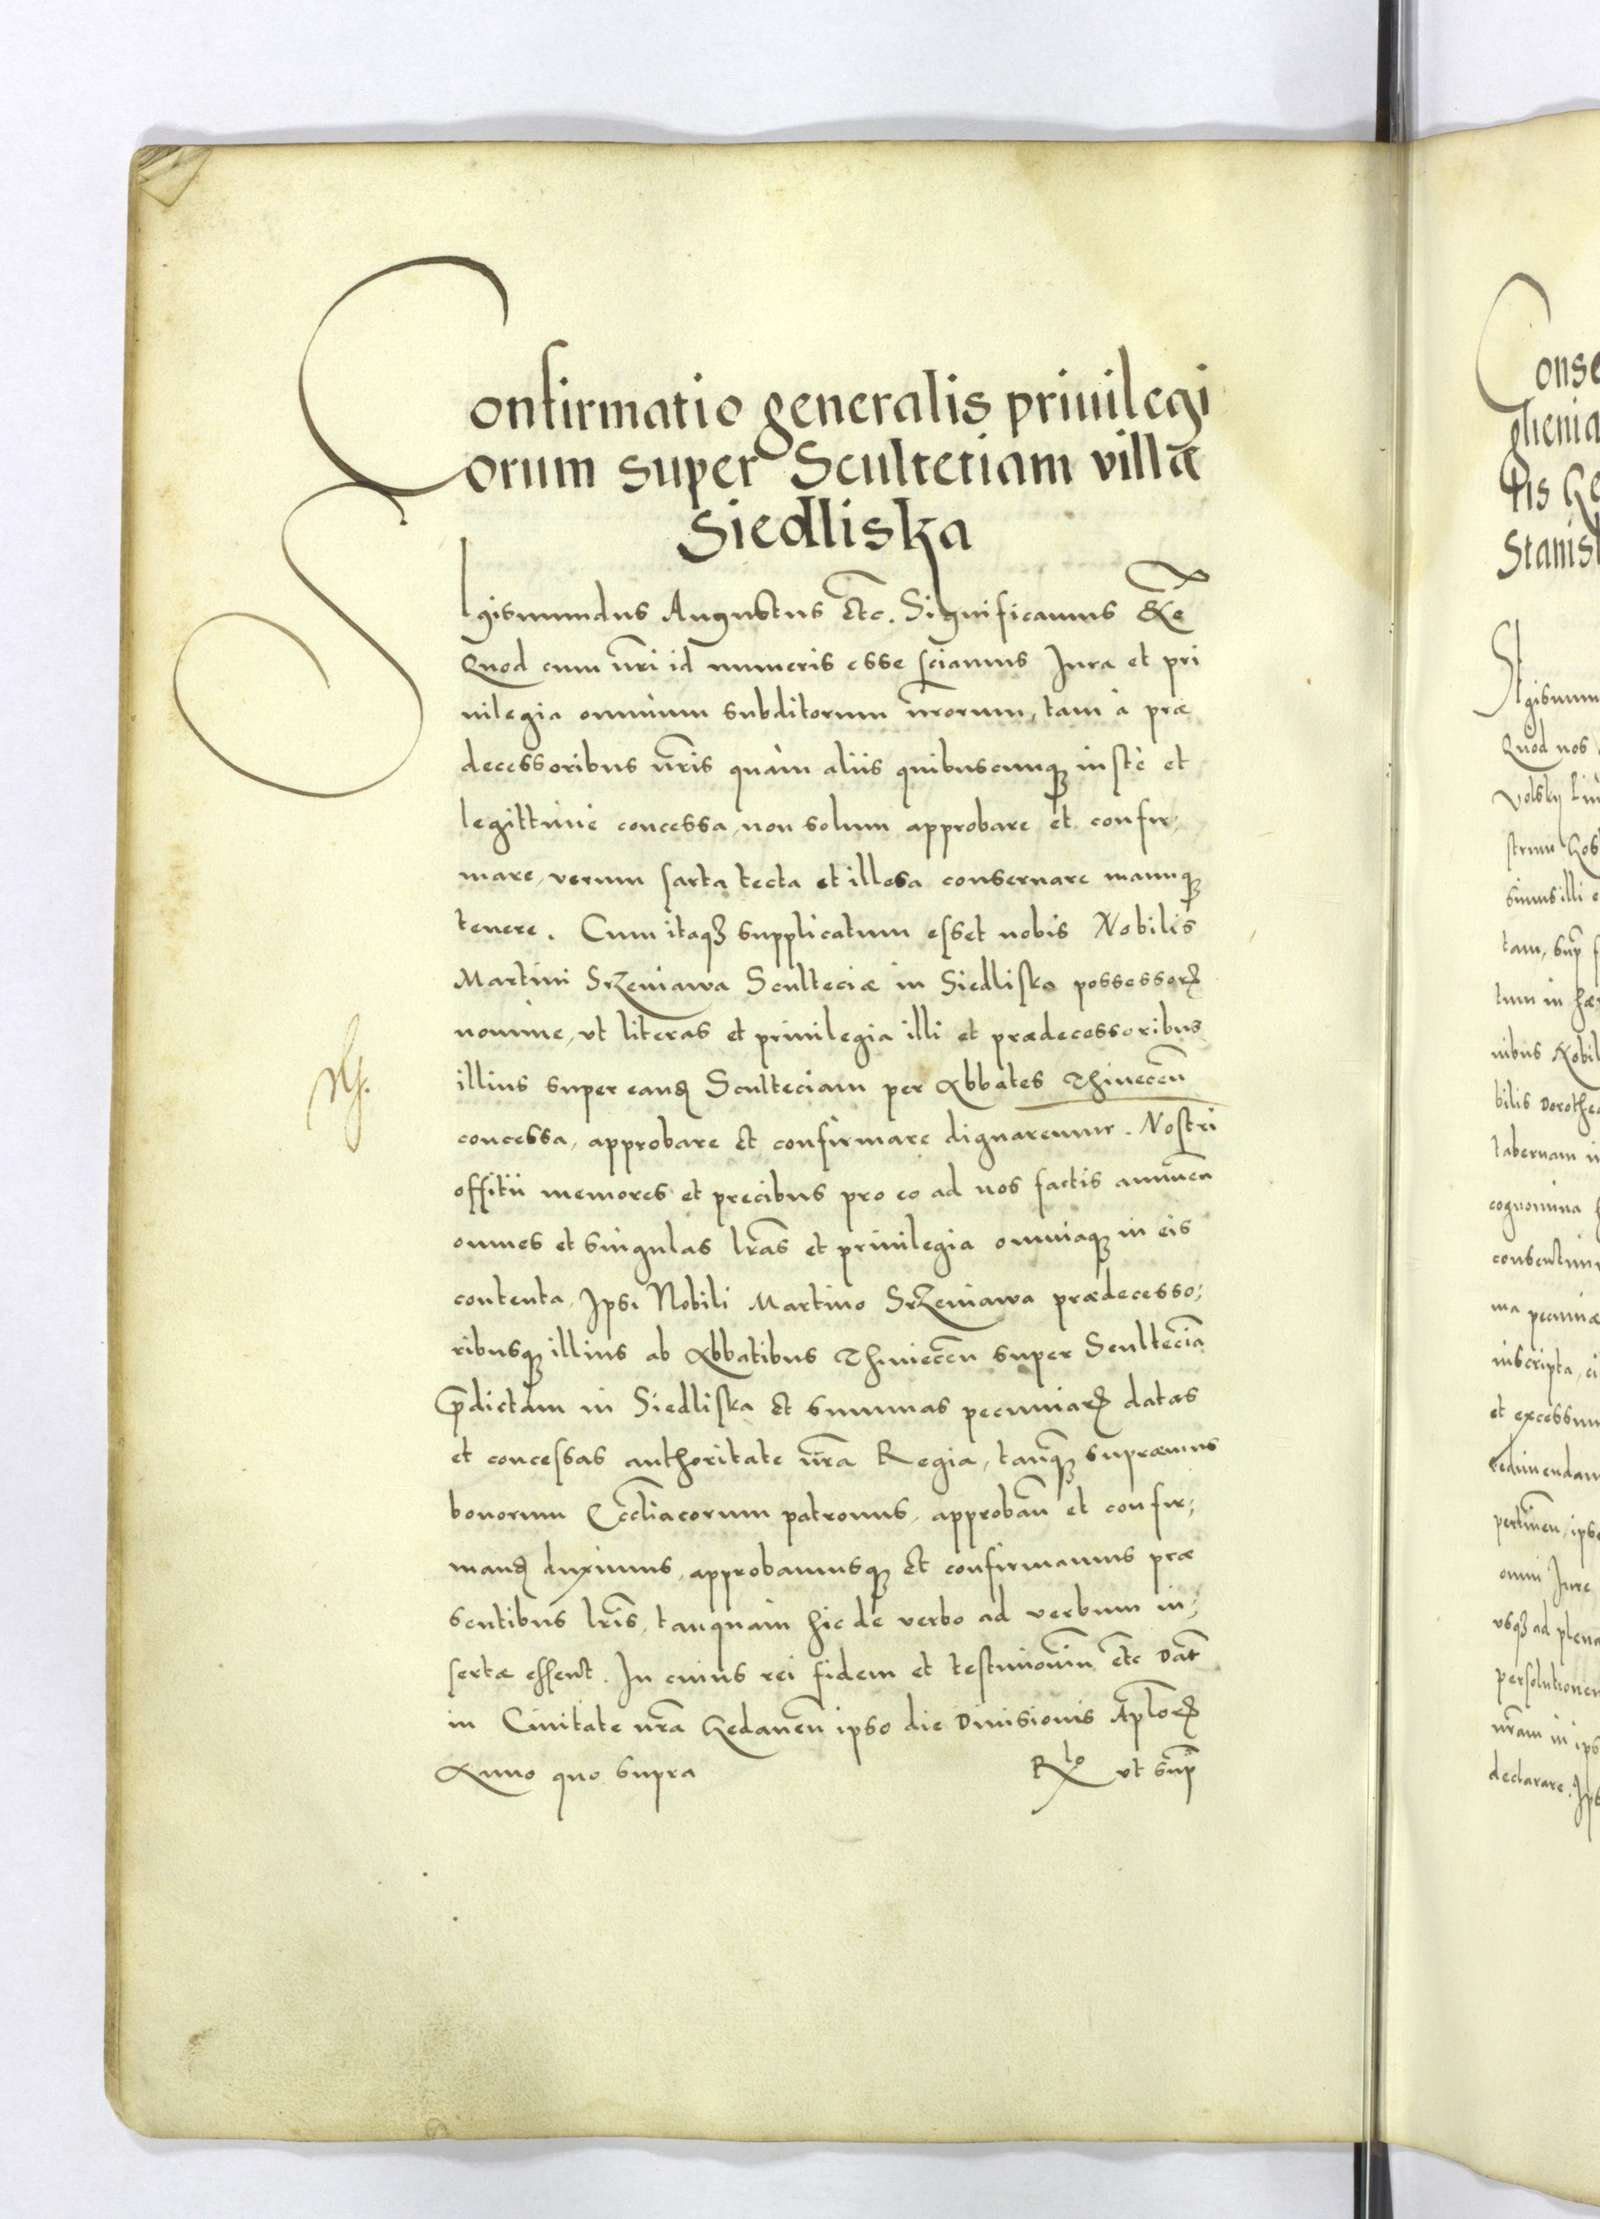 Confirmatio generalis priuilegi
orum super Scultetiam villæ
Siedliska
Sigismundus Augustus etc. Significamus etc
Quod cum nr̃i id muneris esse sciamus Jura et pri
uilegia omnium subditorum nr̃orum, tam à præ
decessoribus nr̃is quàm aliis quibuscunqꝫ iustè et
legittimè concessa, non solum approbare et confir,
mare, verum sarta tecta et illesa conseruare manuqꝫ
tenere. Cum itaqꝫ supplicatum esset nobis Nobilis
Martini Srzeniawa Sculteciæ in Siedliska possessorꝭ
nomine, vt literas et priuilegia illi et prædecessoribus
illius super eandꝭ Sculteciam per Abbates Thinecen̄
concessa, approbare et confirmare dignaremur. Nostri
offitii memores et precibus pro eo ad nos factis annuen̄
omnes et singulas lr̃as et priuilegia omniaqꝫ in eis
contenta, Jpsi Nobili Martino Srzeniawa prædecesso;
ribusqꝫ illius ab Abbatibus Thiniecen̄ super Scultecia̅
p̄dictam in Siedliska et summas pecuniarꝭ datas
et concessas authoritate nr̃a Regia, tanq̃ꝫ supræmus
bonorum Eccl̃iacorum patronus, approban̄ et confir;
mandꝭ duximus, approbamusqꝫ et confirmamus præ
sentibus lr̃is, tanquam hic de verbo ad verbum in;
sertæ essent. In cuius rei fidem et testimoniu̅ etc Dat̃
in Ciuitate nr̃a Gedanen̄ ipso die Diuisionis Apl̃orꝭ
Anno quo supra Rlo vt sup̃
Conse
Stanisl
Sigismun
Quod nos
Volskij
simus illi
tam, sup̃
tum in hæ
nibus Nobil
bilis Dorothe
tabernam i
cognomina
consentim
ma pecuniæ
inscripta, ci
et excessum
redimendam
pertinen̄, ips
omni Jure
vsqꝫ ad plena
persolutionem
nr̃am in ips
declarare. Jps